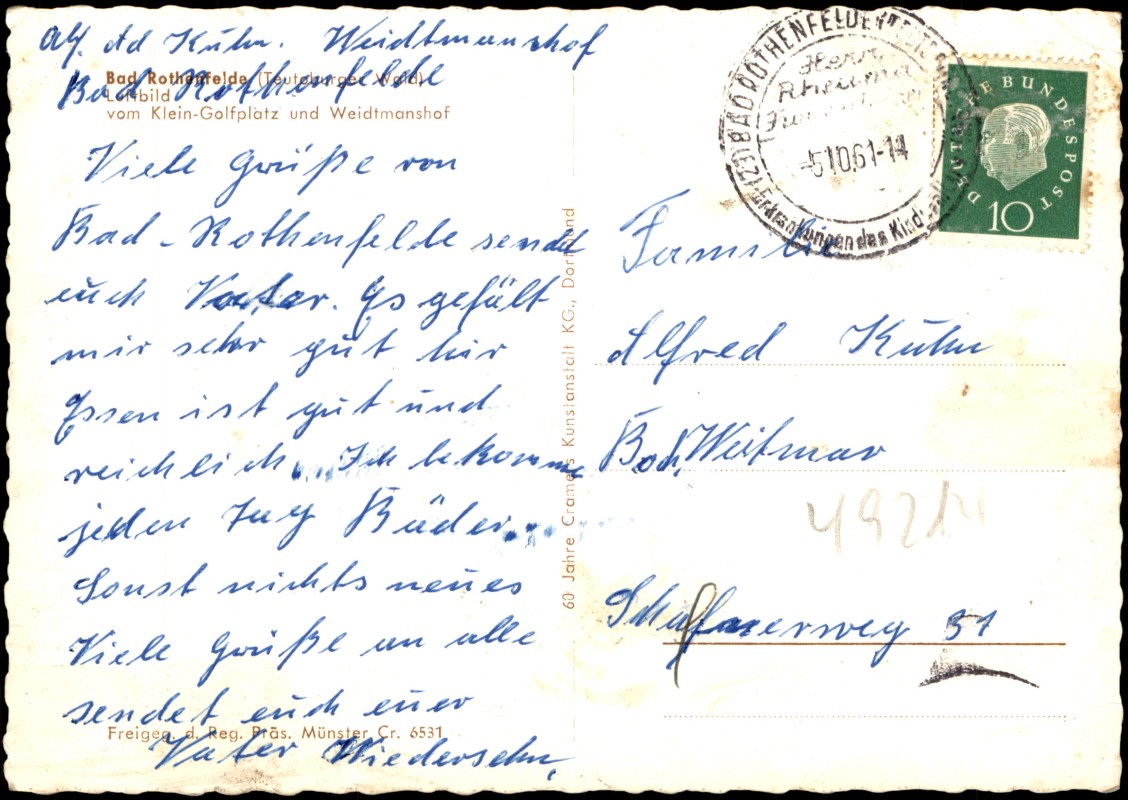 Kuhn. Weidtmannshof
Bad Rothenfelde
Bad Rothenfelde (Teutoburger Wald)
Luftbild
vom Klein-Golfplatz und Weidtmanshof
Viele Grüße von
Bad-Rothenfelde sendet
euch Vater. Es gefält
mir sehr gut hir
Essen ist gut und
reichlich. Ich bekomme
jeden Tag Bäder.
Sonst nichts neues
Viele Grüße an alle
sendet euch euer
Vater Wiedersehn.
Freigeg. d. Reg. Präs. Münster Cr. 6531
60 Jahre Cramers Kunstanstalt KG., Dortmund
(23) BAD ROTHENFELDE
Herz
Rheuma
-5.10.61-14
Erkrankungen des Kind
DEUTSCHE BUNDESPOST
10
Familie
Alfred Kuhn
Boch. Weitmar
4921
weg 51